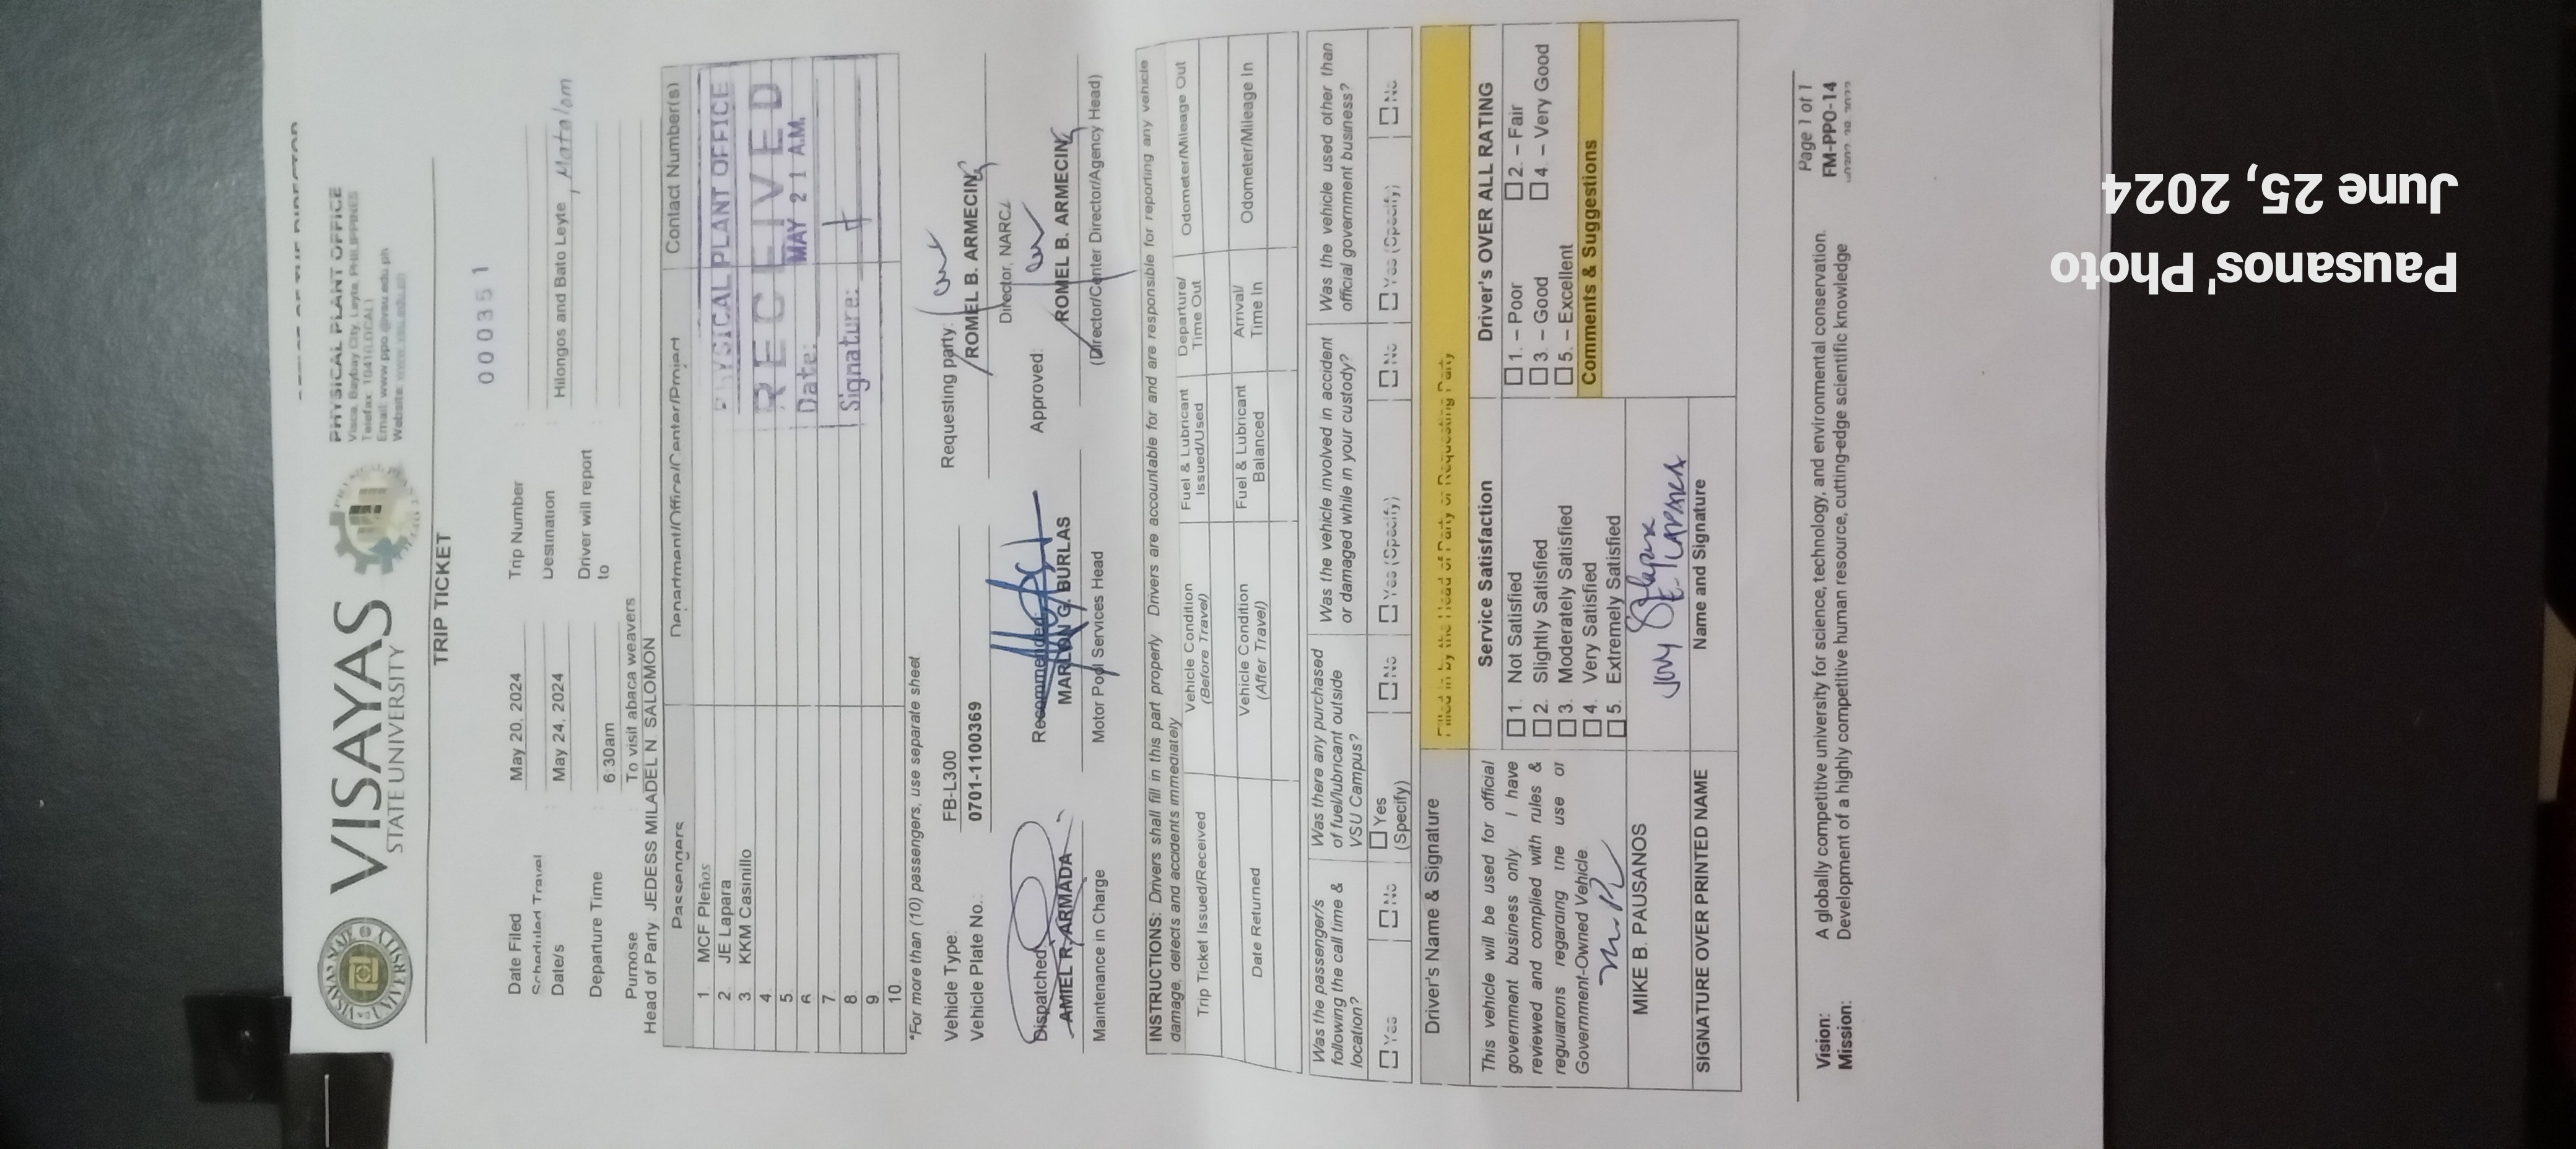 VISAYAS
STATE UNIVERSITY
PHYSICAL PLANT OFFICE
Visca, Baybay City, Leyte, PHILIPPINES
Telefax 1041(LOCAL)
Email: www.ppo@vsu.edu.ph
Website: www.vsu.edu.ph
TRIP TICKET
000351
Date Filed May 20, 2024 Trip Number :
Scheduled Travel Date/s : May 24, 2024 Destination : Hilongos and Bato Leyte , Matalom
Departure Time : 6:30am Driver will report to :
Purpose To visit abaca weavers
Head of Party: JEDESS MILADEL N. SALOMON
Passengers Department/Office/Center/Project Contact Number(s)
1. MCF Pleños
2 JE Lapara
3. KKM Casinillo
4.
5.
6
7.
8.
9.
10.
PHYSICAL PLANT OFFICE
RECEIVED
Date: MAY 21 A.M.
Signature:
*For more than (10) passengers, use separate sheet
Vehicle Type: FB-L300
Vehicle Plate No.: 0701-1100369
Requesting party:
ROMEL B. ARMECIN
Director, NARC
Dispatched
AMIEL R. ARMADA
Maintenance in Charge
Recommended
MARLON G. BURLAS
Motor Pool Services Head
Approved:
ROMEL B. ARMECIN
(Director/Center Director/Agency Head)
INSTRUCTIONS: Drivers shall fill in this part properly Drivers are accountable for and are responsible for reporting any vehicle
damage, defects and accidents immediately
Trip Ticket Issued/Received Vehicle Condition (Before Travel) Fuel & Lubricant Issued/Used Departure/ Time Out Odometer/Mileage Out
Date Returned Vehicle Condition (After Travel) Fuel & Lubricant Balanced Arrival/ Time In Odometer/Mileage In
Was the passenger/s following the call time & location?
Yes No
Was there any purchased of fuel/lubricant outside VSU Campus?
Yes (Specify) No
Was the vehicle involved in accident or damaged while in your custody?
Yes (Specify) No
Was the vehicle used other than official government business?
Yes (Specify) No
Driver's Name & Signature
Filled in by the Head of Party or Requesting Party
This vehicle will be used for official
government business only. I have
reviewed and complied with rules &
regulations regarding the use of
Government-Owned Vehicle.
MIKE B. PAUSANOS
SIGNATURE OVER PRINTED NAME
Service Satisfaction
1. Not Satisfied
2. Slightly Satisfied
3. Moderately Satisfied
4. Very Satisfied
5. Extremely Satisfied
Name and Signature
Driver's OVER ALL RATING
1. – Poor 2. – Fair
3. – Good 4. – Very Good
5. – Excellent
Comments & Suggestions
Vision: A globally competitive university for science, technology, and environmental conservation.
Mission: Development of a highly competitive human resource, cutting-edge scientific knowledge
Page 1 of 1
FM-PPO-14
Pausanos' Photo
June 25, 2024